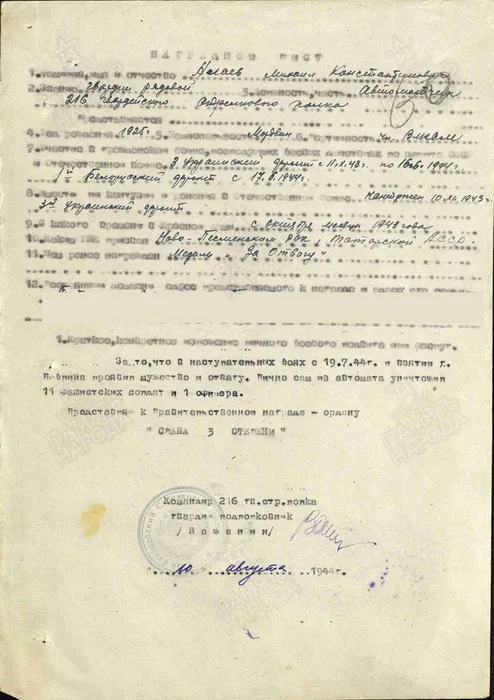 НАГРАДНОЙ ЛИСТ
1. Фамилия, имя и отчество Михаил Константинович
2. Звание гвардии рядовой 3. Должность, часть Автоматчик
216 Гвардейского стрелкового полка
Представляется
4. Год рождения 1925 5. Национальность Мордвин 6. Партийность чл. ВЛКСМ
и отечественной войне 3 Украинский фронт с 11.X.43г. по 16.6.1944г.
1й Белорусский фронт с 17.6.1944г.
ранения в отечественной войне. Контужен 10.XI.1943г.
3й Украинский фронт
9. С какого времени в Красной с октября месяца 1943 года
10. Каким РВК призван РВК, Татарской АССР.
11. Чем ранее награжден Медаль "За Отвагу"
12.
1. Краткое, конкретное изложение личного боевого подвига или заслуг.
За то, что в наступательных боях с 19.7.44г. и взятии г.
Люблина проявил мужество и отвагу. Лично сам из автомата уничтожил
11 фашистских солдат и 1 офицера.
Представляю к правительственной награде - ордену
"СЛАВА 3 СТЕПЕНИ"
Командир 216 гв.стр.полка
гвардии подполковник
"10" августа 1944г.